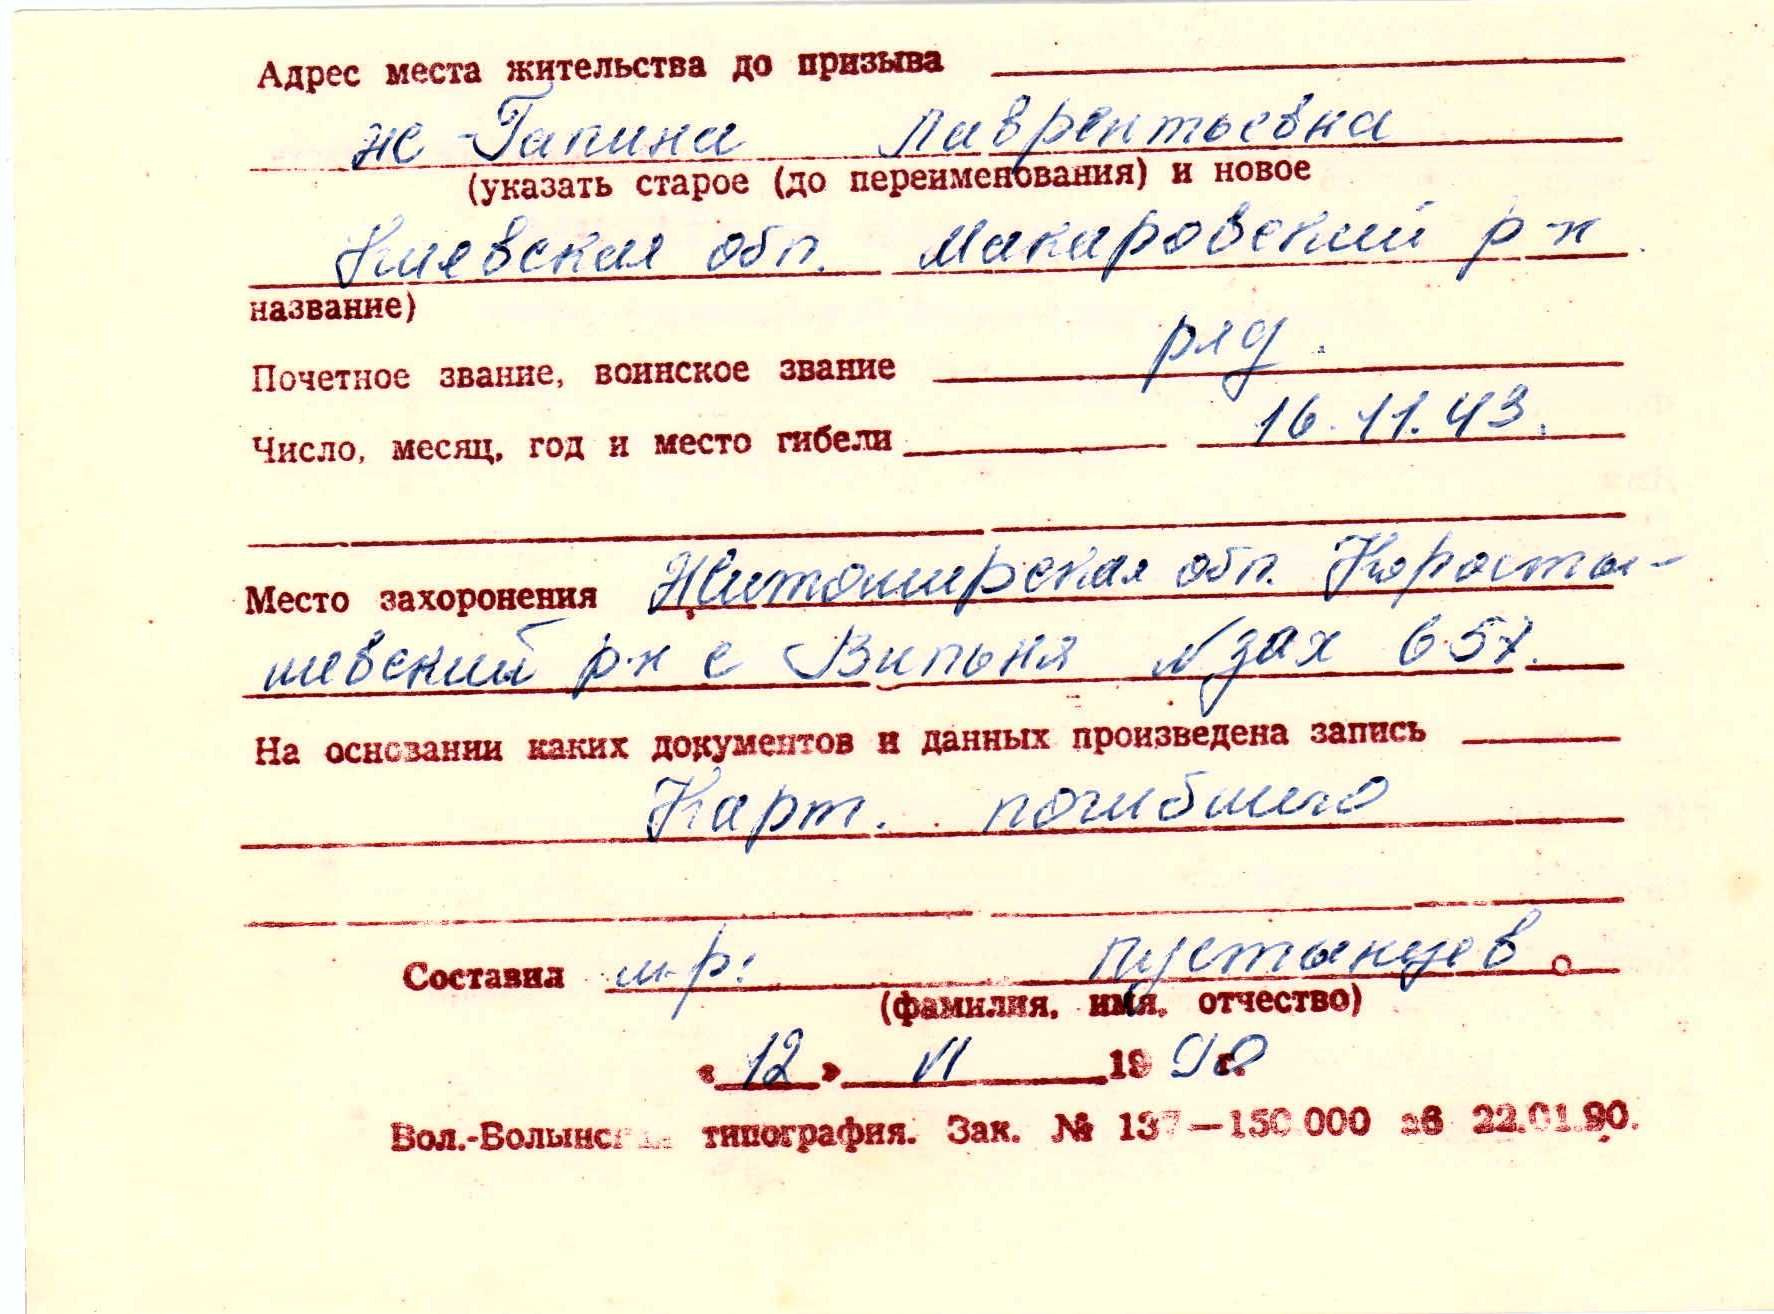 Адрес места жительства до призыва
ж - Гапина Лаврентьевна
(указать старое (до переименования) и новое
Киевская обл. Макаровский р-н
название)
Почетное звание, воинское звание ряд.
Число, месяц, год и место гибели 16.11.43.
Место захоронения Житомирская обл. Коросты-
шевский р-н с Вильня № зах 657.
На основании каких документов и данных произведена запись
Карт. погибшего
Составил м-р: Пустынцев
(фамилия, имя, отчество)
« 12 » VI 1990 г.
Вол.-Волынская типография. Зак. № 137—150.000 эв 22.01.90.